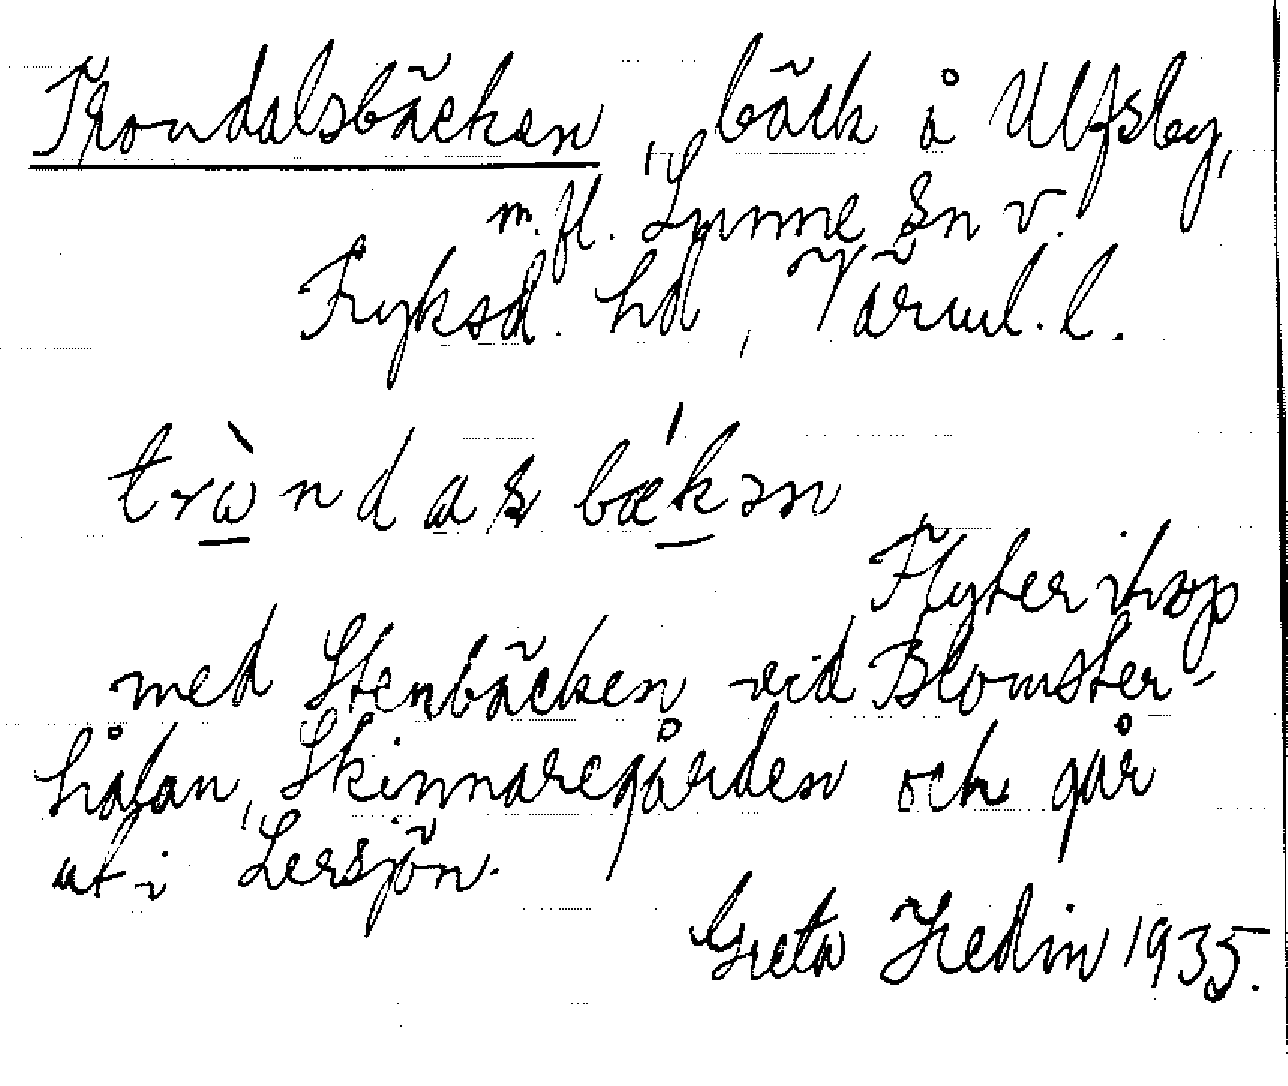 Trondalsbäcken, bäck å Ulfsby,
m.fl. Sunne sn v.
Fryksd. hd, Värml. l.
trὼndas bækən
Flyter ihop
med Stenbäcken vid Blomster-
hålan, Skinnaregården och går
ut i Lersjön.
Greta Hedin 1935.